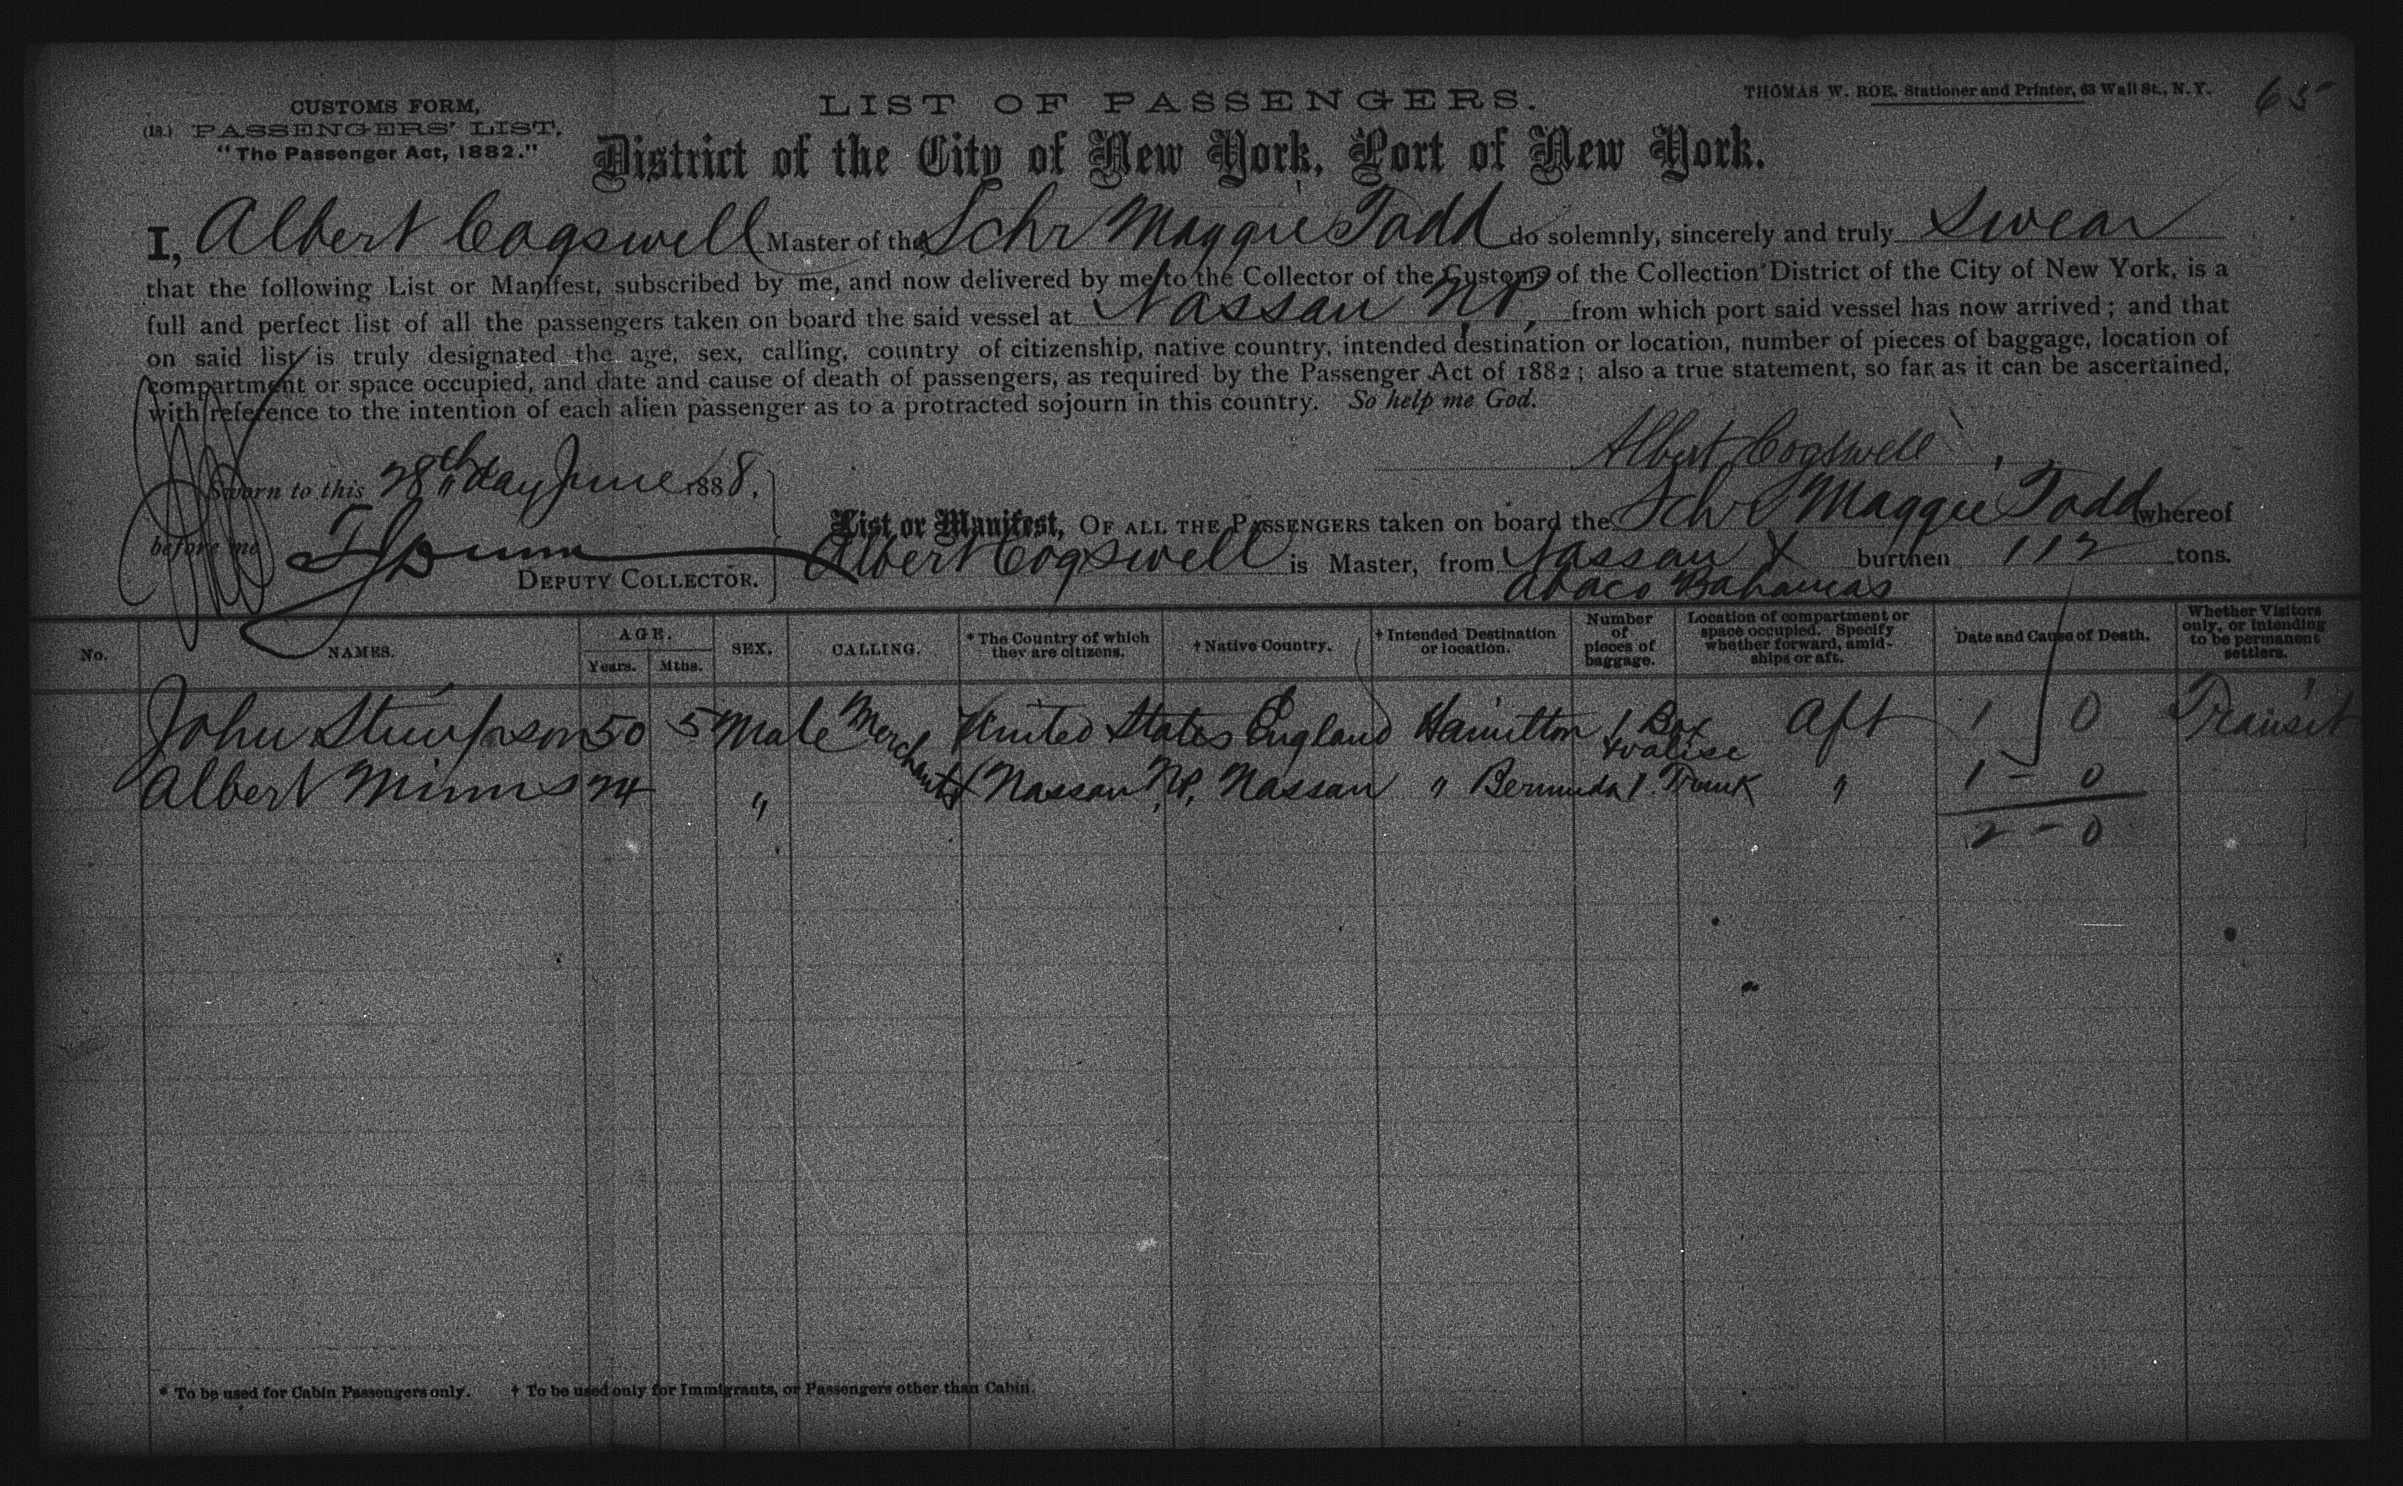 CUSTOMS FORM,
(13.) PASSENGERS' LIST,
"The Passenger Act, 1882."
LIST OF PASSENGERS.
THOMAS W. ROE, Stationer and Printer, 63 Wall St., N.Y.
65
District of the City of New York, Port of New York.
I, Albert Cogswell Master of the Schr Maggie Todd do solemnly, sincerely and truly Swear
that the following List or Manifest, subscribed by me, and now delivered by me to the Collector of the Customs of the Collection District of the City of New York, is a
full and perfect list of all the passengers taken on board the said vessel at Nassau N.P, from which port said vessel has now arrived; and that
on said list is truly designated the age, sex, calling, country of citizenship, native country, intended destination or location, number of pieces of baggage, location of
compartment or space occupied, and date and cause of death of passengers, as required by the Passenger Act of 1882; also a true statement, so far as it can be ascertained,
with reference to the intention of each alien passenger as to a protracted sojourn in this country. So help me God.
Albert Cogswell
Sworn to this 28th day June 1888.
before me
DEPUTY COLLECTOR.
List or Manifest, OF ALL THE PASSENGERS taken on board the Schr Maggie Todd whereof
Albert Cogswell is Master, from Nassau & burthen 112 tons.
Abaco Bahamas
No. NAMES. AGE. Years. Mths. SEX. CALLING. * The Country of which they are citizens. † Native Country. † Intended Destination or location. Number of pieces of baggage. Location of compartment or space occupied. Specify whether forward, amidships or aft. Date and Cause of Death. Whether Visitors only, or intending to be permanent settlers.
John Stimpson 50 5 Male Merchant United States England Hamilton 1 Box & valise Aft 1 0 Transit
Albert Minns 24 " Nassau N.P. Nassau " Bermuda 1. Trunk " 1 - 0
2 - 0
* To be used for Cabin Passengers only. † To be used only for Immigrants, or Passengers other than Cabin.